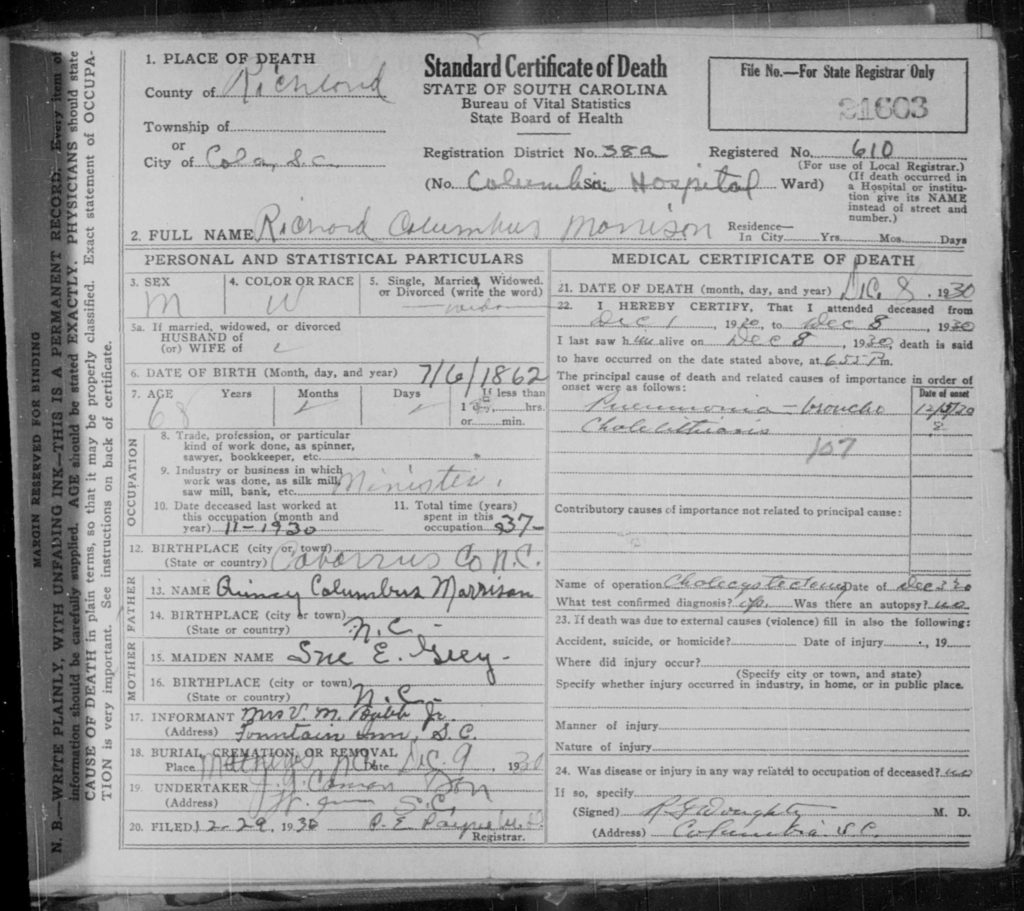 MARGIN RESERVED FOR BINDING
N. B.—WRITE PLAINLY, WITH UNFADING INK—THIS IS A PERMANENT RECORD. Every item of
information should be carefully supplied. AGE should be stated EXACTLY. PHYSICIANS should state
CAUSE OF DEATH in plain terms, so that it may be properly classified. Exact statement of OCCUPA-
TION is very important. See instructions on back of certificate.
1. PLACE OF DEATH
County of Richland
Township of
or
City of Cola, S.C.
Standard Certificate of Death
STATE OF SOUTH CAROLINA
Bureau of Vital Statistics
State Board of Health
File No.—For State Registrar Only
21603
Registration District No. 38a Registered No. 610
(For use of Local Registrar.)
(No. Columbia St. Hospital Ward)
(If death occurred in
a Hospital or institu-
tion give its NAME
instead of street and
number.)
2. FULL NAME Richard Columbus Morrison
Residence—
In City Yrs. Mos. Days
PERSONAL AND STATISTICAL PARTICULARS
3. SEX M
4. COLOR OR RACE W
5. Single, Married, Widowed.
or Divorced (write the word)
5a. If married, widowed, or divorced
HUSBAND of
(or) WIFE of
6. DATE OF BIRTH (Month, day, and year) 7/6/1862
7. AGE Years Months Days If less than
68 1 day, hrs.
or min.
OCCUPATION
8. Trade, profession, or particular
kind of work done, as spinner,
sawyer, bookkeeper, etc.
9. Industry or business in which
work was done, as silk mill,
saw mill, bank, etc. Minister.
10. Date deceased last worked at
this occupation (month and
year) 11-1930
11. Total time (years)
spent in this
occupation 37-
12. BIRTHPLACE (city or town)
(State or country) Cabarrus Co N.C.
FATHER
13. NAME Quincy Columbus Morrison
14. BIRTHPLACE (city or town)
(State or country) N.C.
MOTHER
15. MAIDEN NAME Sue E.
16. BIRTHPLACE (city or town)
(State or country) N.C.
17. INFORMANT Mrs V. M. Babb Jr.
(Address) Fountain Inn, S.C.
18. BURIAL, CREMATION, OR REMOVAL
Place Matthews N.C. Date Dec. 9, 1930
19. UNDERTAKER
(Address) S.C.
20. FILED 12-29, 1930 P. E. Payne M.D.
Registrar.
MEDICAL CERTIFICATE OF DEATH
21. DATE OF DEATH (month, day, and year) Dec. 8, 1930
22. I HEREBY CERTIFY, That I attended deceased from
Dec 1, 1930, to Dec 8, 1930
I last saw him alive on Dec 8, 1930, death is said
to have occurred on the date stated above, at 6:55 P.m.
The principal cause of death and related causes of importance in order of
onset were as follows:
Date of onset
Pneumonia - broncho
Cholelithiasis ?
107
Contributory causes of importance not related to principal cause:
Name of operation Cholecystectomy Date of Dec 3 30
What test confirmed diagnosis? Was there an autopsy? no
23. If death was due to external causes (violence) fill in also the following:
Accident, suicide, or homicide? Date of injury , 19
Where did injury occur?
(Specify city or town, and state)
Specify whether injury occurred in industry, in home, or in public place.
Manner of injury
Nature of injury
24. Was disease or injury in any way related to occupation of deceased? no
If so, specify
(Signed) R G Doughty M. D.
(Address) Columbia S.C.